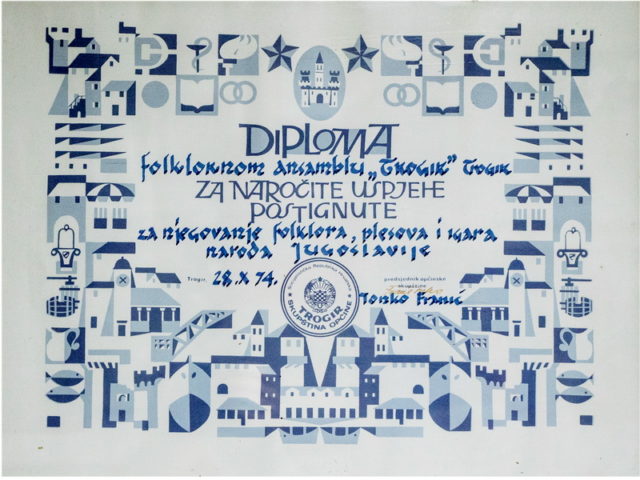 DIPLOMA
folklornom ansamblu „Trogir" Trogir
ZA NAROČITE USPJEHE
POSTIGNUTE
za njegovanje folklora, plesova i igara
naroda Jugoslavije
Trogir, 28. X 74.
predsjednik općinske
skupštine
Tonko Franić
TROGIR
SKUPŠTINA OPĆINE